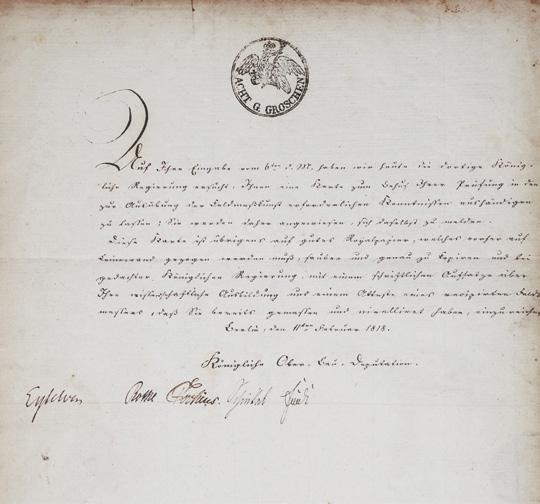 ACHT G. GROSCHEN
Auf Ihre Eingabe vom 6ten d. M. haben wir heute die dortige König-
liche Regierung ersucht, Ihnen eine Karte zum Behuf Ihrer Prüfung in den
zur Ausübung der Feldmeßkunst erforderlichen Kenntnissen aushändigen
zu lassen; Sie werden daher angewiesen, sich daselbst zu melden.
Diese Karte ist übrigens auf gutes Royalpapier, welches vorher auf
Leinewand gezogen werden muß, sauber und genau zu kopiren und bei
gedachter Königlichen Regierung, mit einem schriftlichen Aufsatze über
Ihre wissenschaftliche Ausbildung und einem Atteste eines vereidigten Feld-
messers, daß Sie bereits gemessen und nivellirt haben, einzureichen
Berlin, den 11ten Februar 1818.
Königliche Ober-Bau-Deputation.
Eytelwein Rothe Schinkel